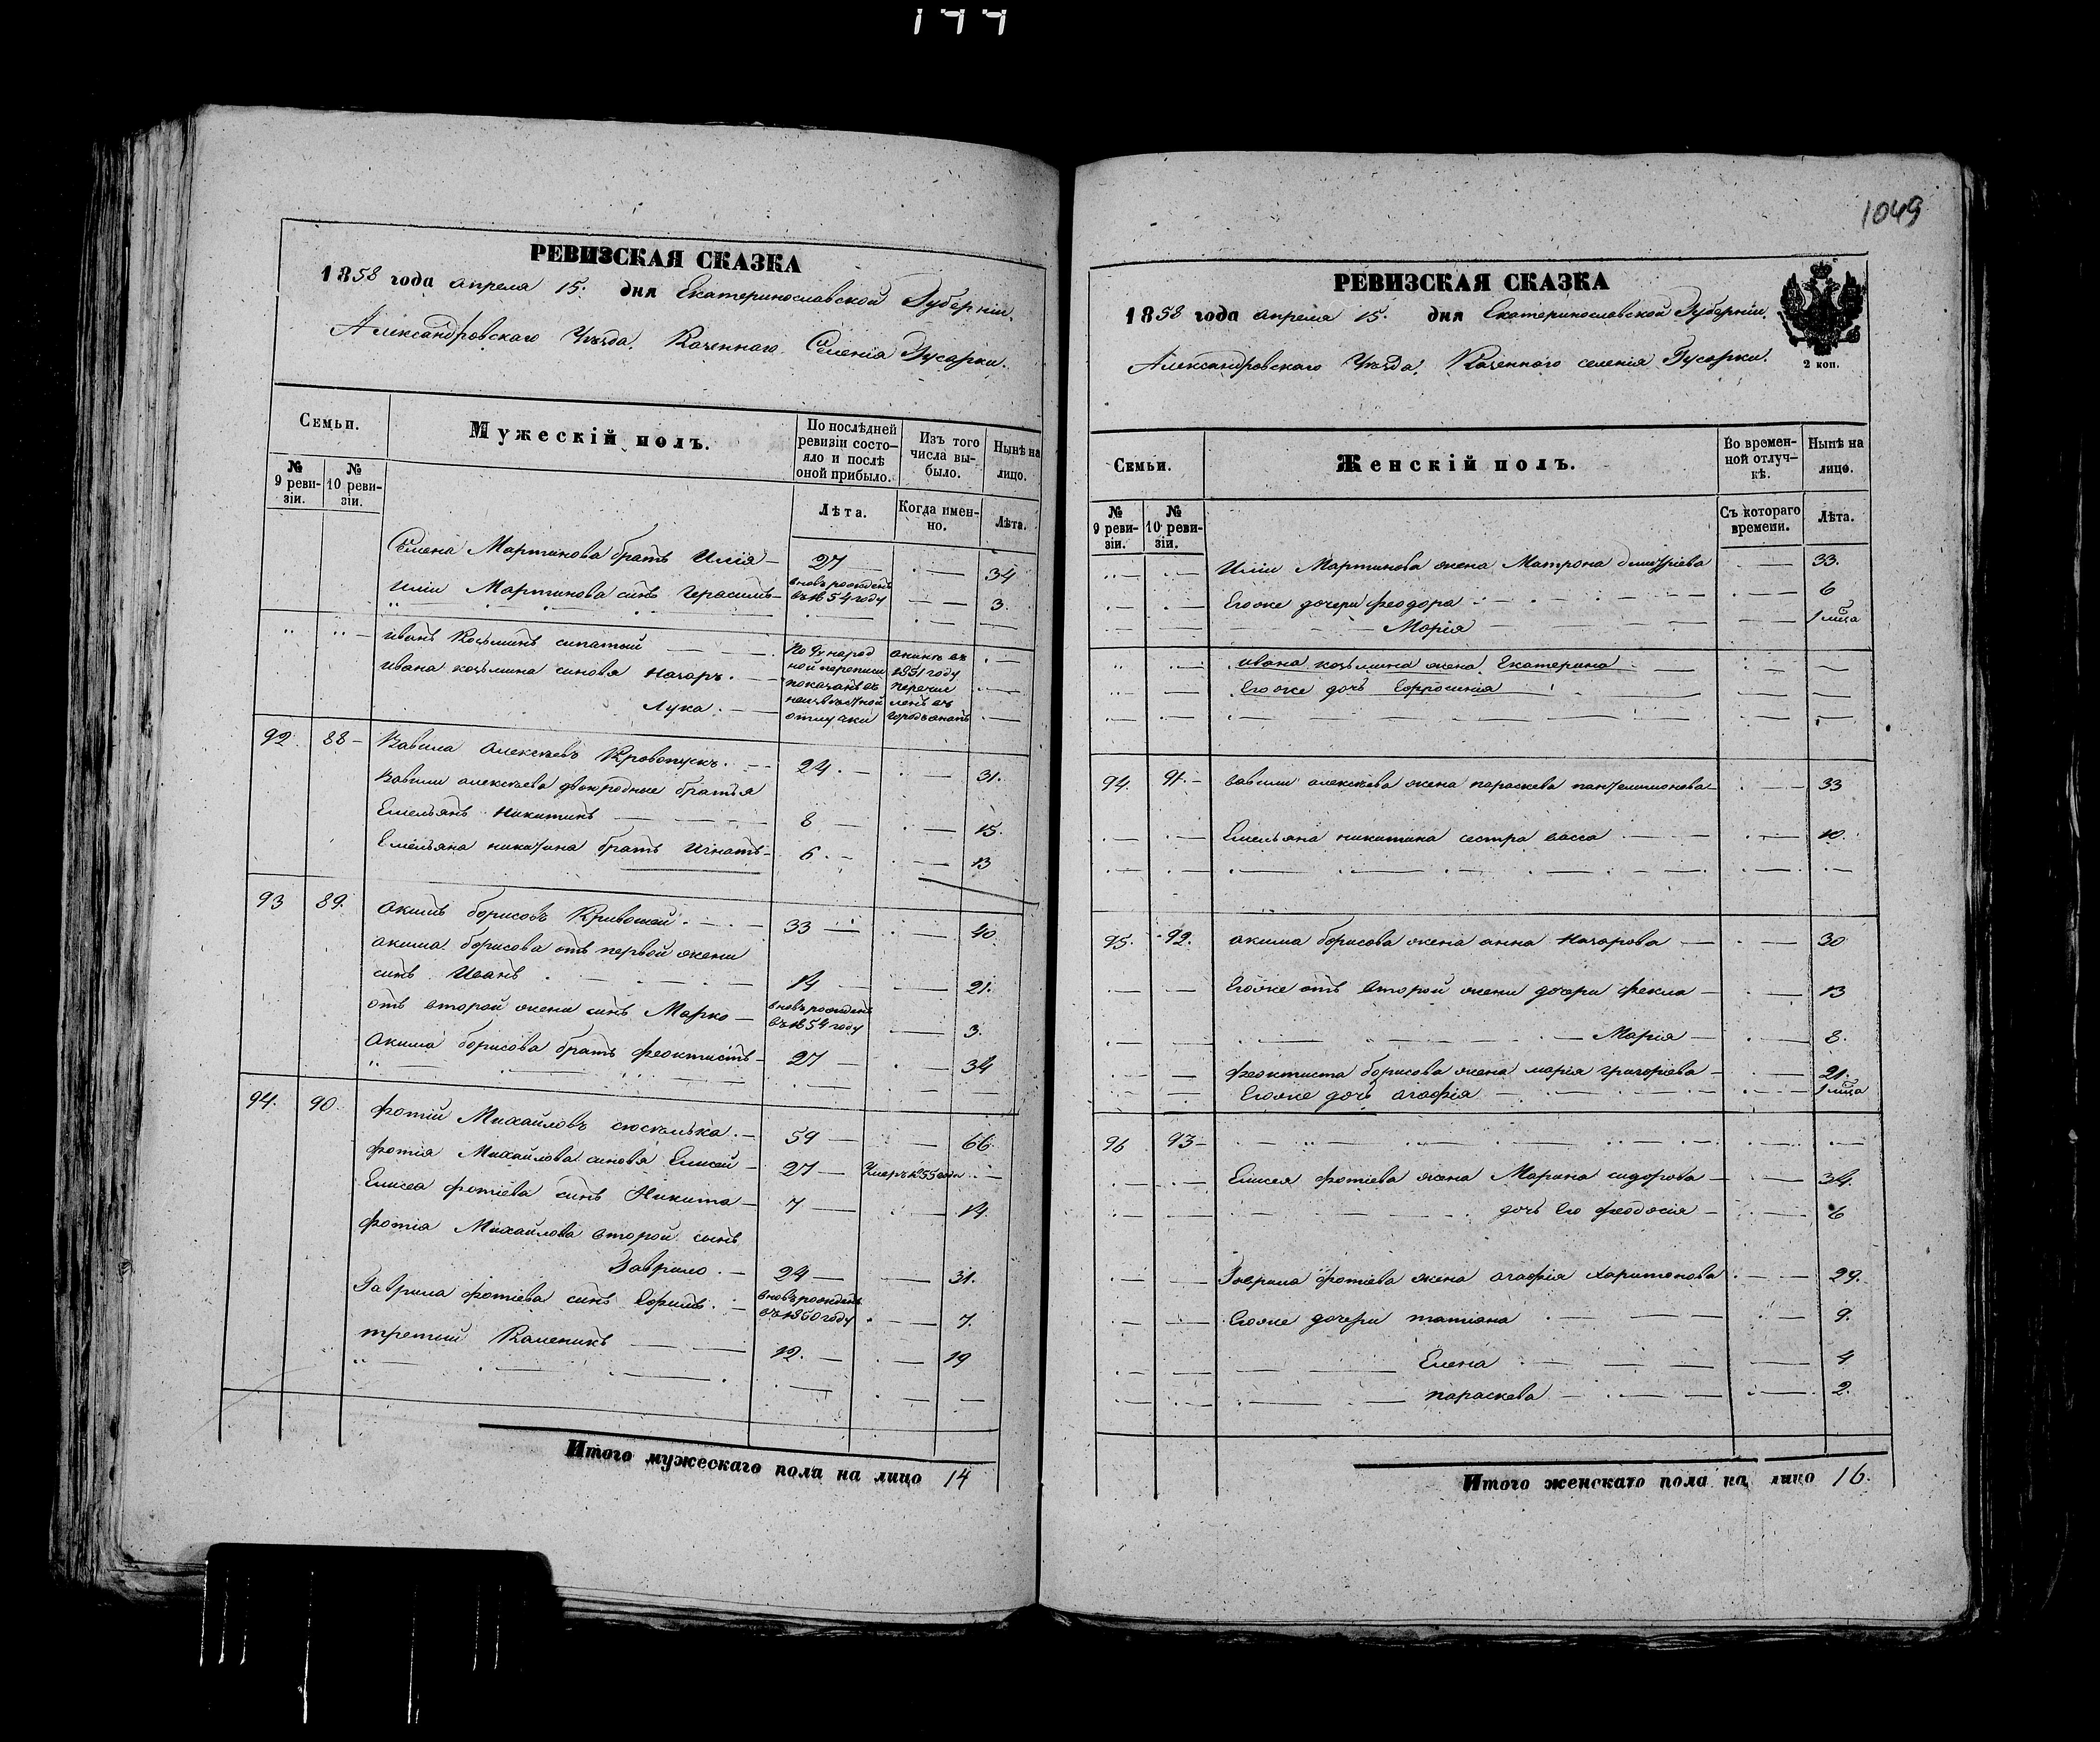 144
РЕВИЗСКАЯ СКАЗКА
1858 года апреля 15. дня Екатеринославской Губерніи.
Александровскаго Уѣзда. Казеннаго Селенія Гусарки.
Семьи.
Мужескій полъ.
По послѣдней ревизіи состо-яло и послѣ оной прибыло.
Изъ того числа вы-было.
Нынѣ на лицо.
№ 9 реви-зіи.
№ 10 реви-зіи.
Лѣта.
Когда имен-но.
Лѣта.
Семена Мартинова братъ Илія — 27 — 34
Иліи Мартинова синъ Герасимъ — вновь рожденъ въ 1854 году — 3.
Иванъ Козьминъ
Ивана козьмина синовя Назаръ.
Лука.
По 9й народ ной переписи показанъ въ неизвѣстной отлучки
1851 году перечис ленъ въ
92. 88 — Вавила Алексѣевъ Кровопускъ. — 24. — 31.
Вавили алексѣева двоюродные братья
Емельянъ Никитинъ — 8 — 15.
Емельяна никитина братъ Игнатъ — 6. — 13
93 89. Акимъ борисовъ Кривошей. — 33 — 40.
акима борисова отъ первой жени
синъ Иванъ. — 14 — 21.
отъ второй жени синъ Марко — вновь рожденъ въ 1854 году — 3.
Акима борисова братъ феоктистъ — 27 — 34
94. 90. фотій Михайловъ — 59 — 66.
фотія Михайлова синовя Елисей — 27 — Умеръ 1855 года
Елисея фотіева синъ Никита — 7 — 14.
фотія Михайлова второй сынъ
Гаврило. — 24 — 31.
Гаврила фотіева синъ Ефимъ. — вновь рожденъ въ 1850 году — 7.
третій Каленикъ — 12. — 19
Итого мужескаго пола на лицо 14
1049
РЕВИЗСКАЯ СКАЗКА
1858 года апреля 15. дня Екатеринославской Губерніи.
Александровскаго Уѣзда. Казенного селенія Гусарки.
2 коп.
Семьи.
Женскій полъ.
Во времен-ной отлуч-кѣ.
Нынѣ на лицо.
№ 9 реви-зіи.
№ 10 реви-зіи.
Съ котораго времени.
Лѣта.
Иліи Мартинова жена Матрона дмитріева — 33.
Егоже дочери феодора — 6
Марія — 1 міца
Ивана козьмина жена Екатерина
Егоже дочь Ефросинія
94. 91. — вавили алексѣева жена параскева пантелимонова — 33
Емельяна никитина сестра васса — 10.
95. 92. акима борисова жена анна Назарова — 30
Егоже отъ второй жени дочери фекла — 13
Марія — 8.
феоктиста борисова жена марія григоріева — 21.
Егоже дочь агафія — 1 міца
96 93 —
Елисея фотіева жена Марина сидорова — 34.
дочь Его феодосія — 6
Гаврила фотіева жена агафія харитонова — 29.
Егоже дочери татіана — 9.
Елена — 4
параскева — 2.
Итого женскаго пола на лицо 16.